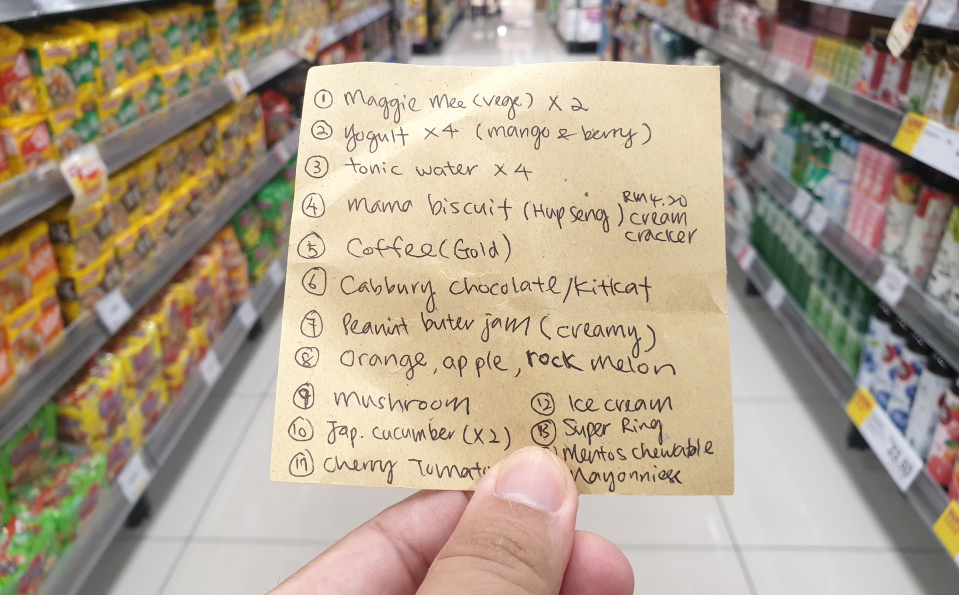 ① Maggie Mee (vege) X 2
② Yogult X 4 (mango & berry)
③ tonic water X 4
④ mama biscuit (Hup seng) RM 4.20 cream cracker
⑤ Coffee (Gold)
⑥ Cabbury chocolate/Kitkat
⑦ Peanut buter jam (creamy)
⑧ Orange, apple, rock melon
⑨ mushroom
⑩ Jap. cucumber (X2)
⑪ Cherry Tomato
⑫ Ice cream
⑬ Super Ring
Mentos chewable
Mayonniese